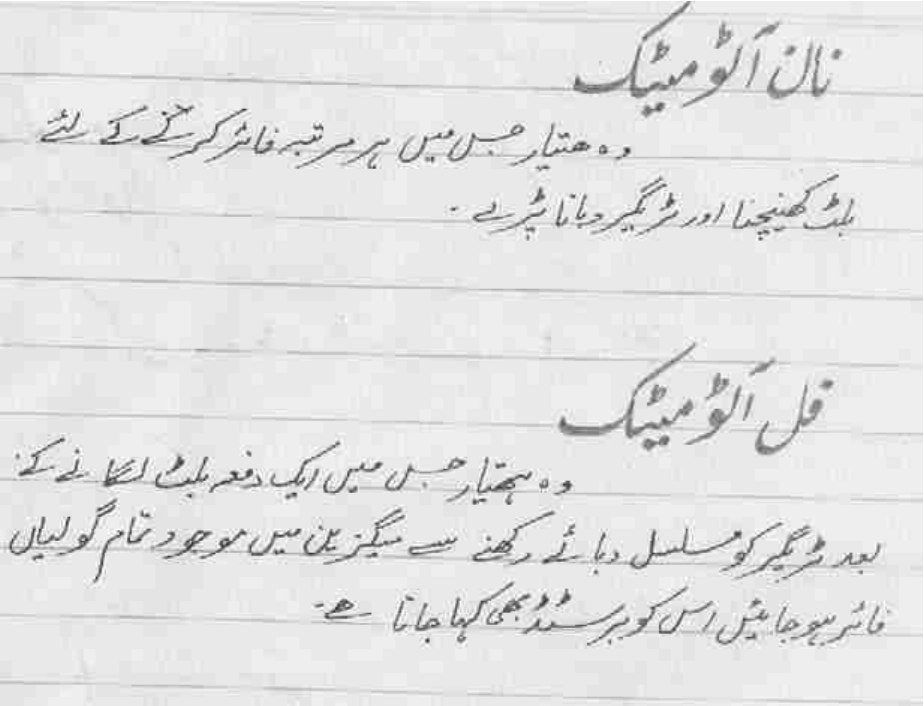 نان آٹومیٹک
وہ ھتیار جس میں ہر مرتبہ فائر کرنے کے لئے
بلٹ کھینچنا اور ٹریگر دبانا پڑے ۔
فل آٹومیٹک
وہ ہتھیار جس میں ایک دفعہ بلٹ لگانے کے
بعد ٹریگر کو مسلسل دبائے رکھنے سے میگزین میں موجود تمام گولیاں
فائر ہو جائیں اس کو برسٹڈ بھی کہا جاتا ھے۔